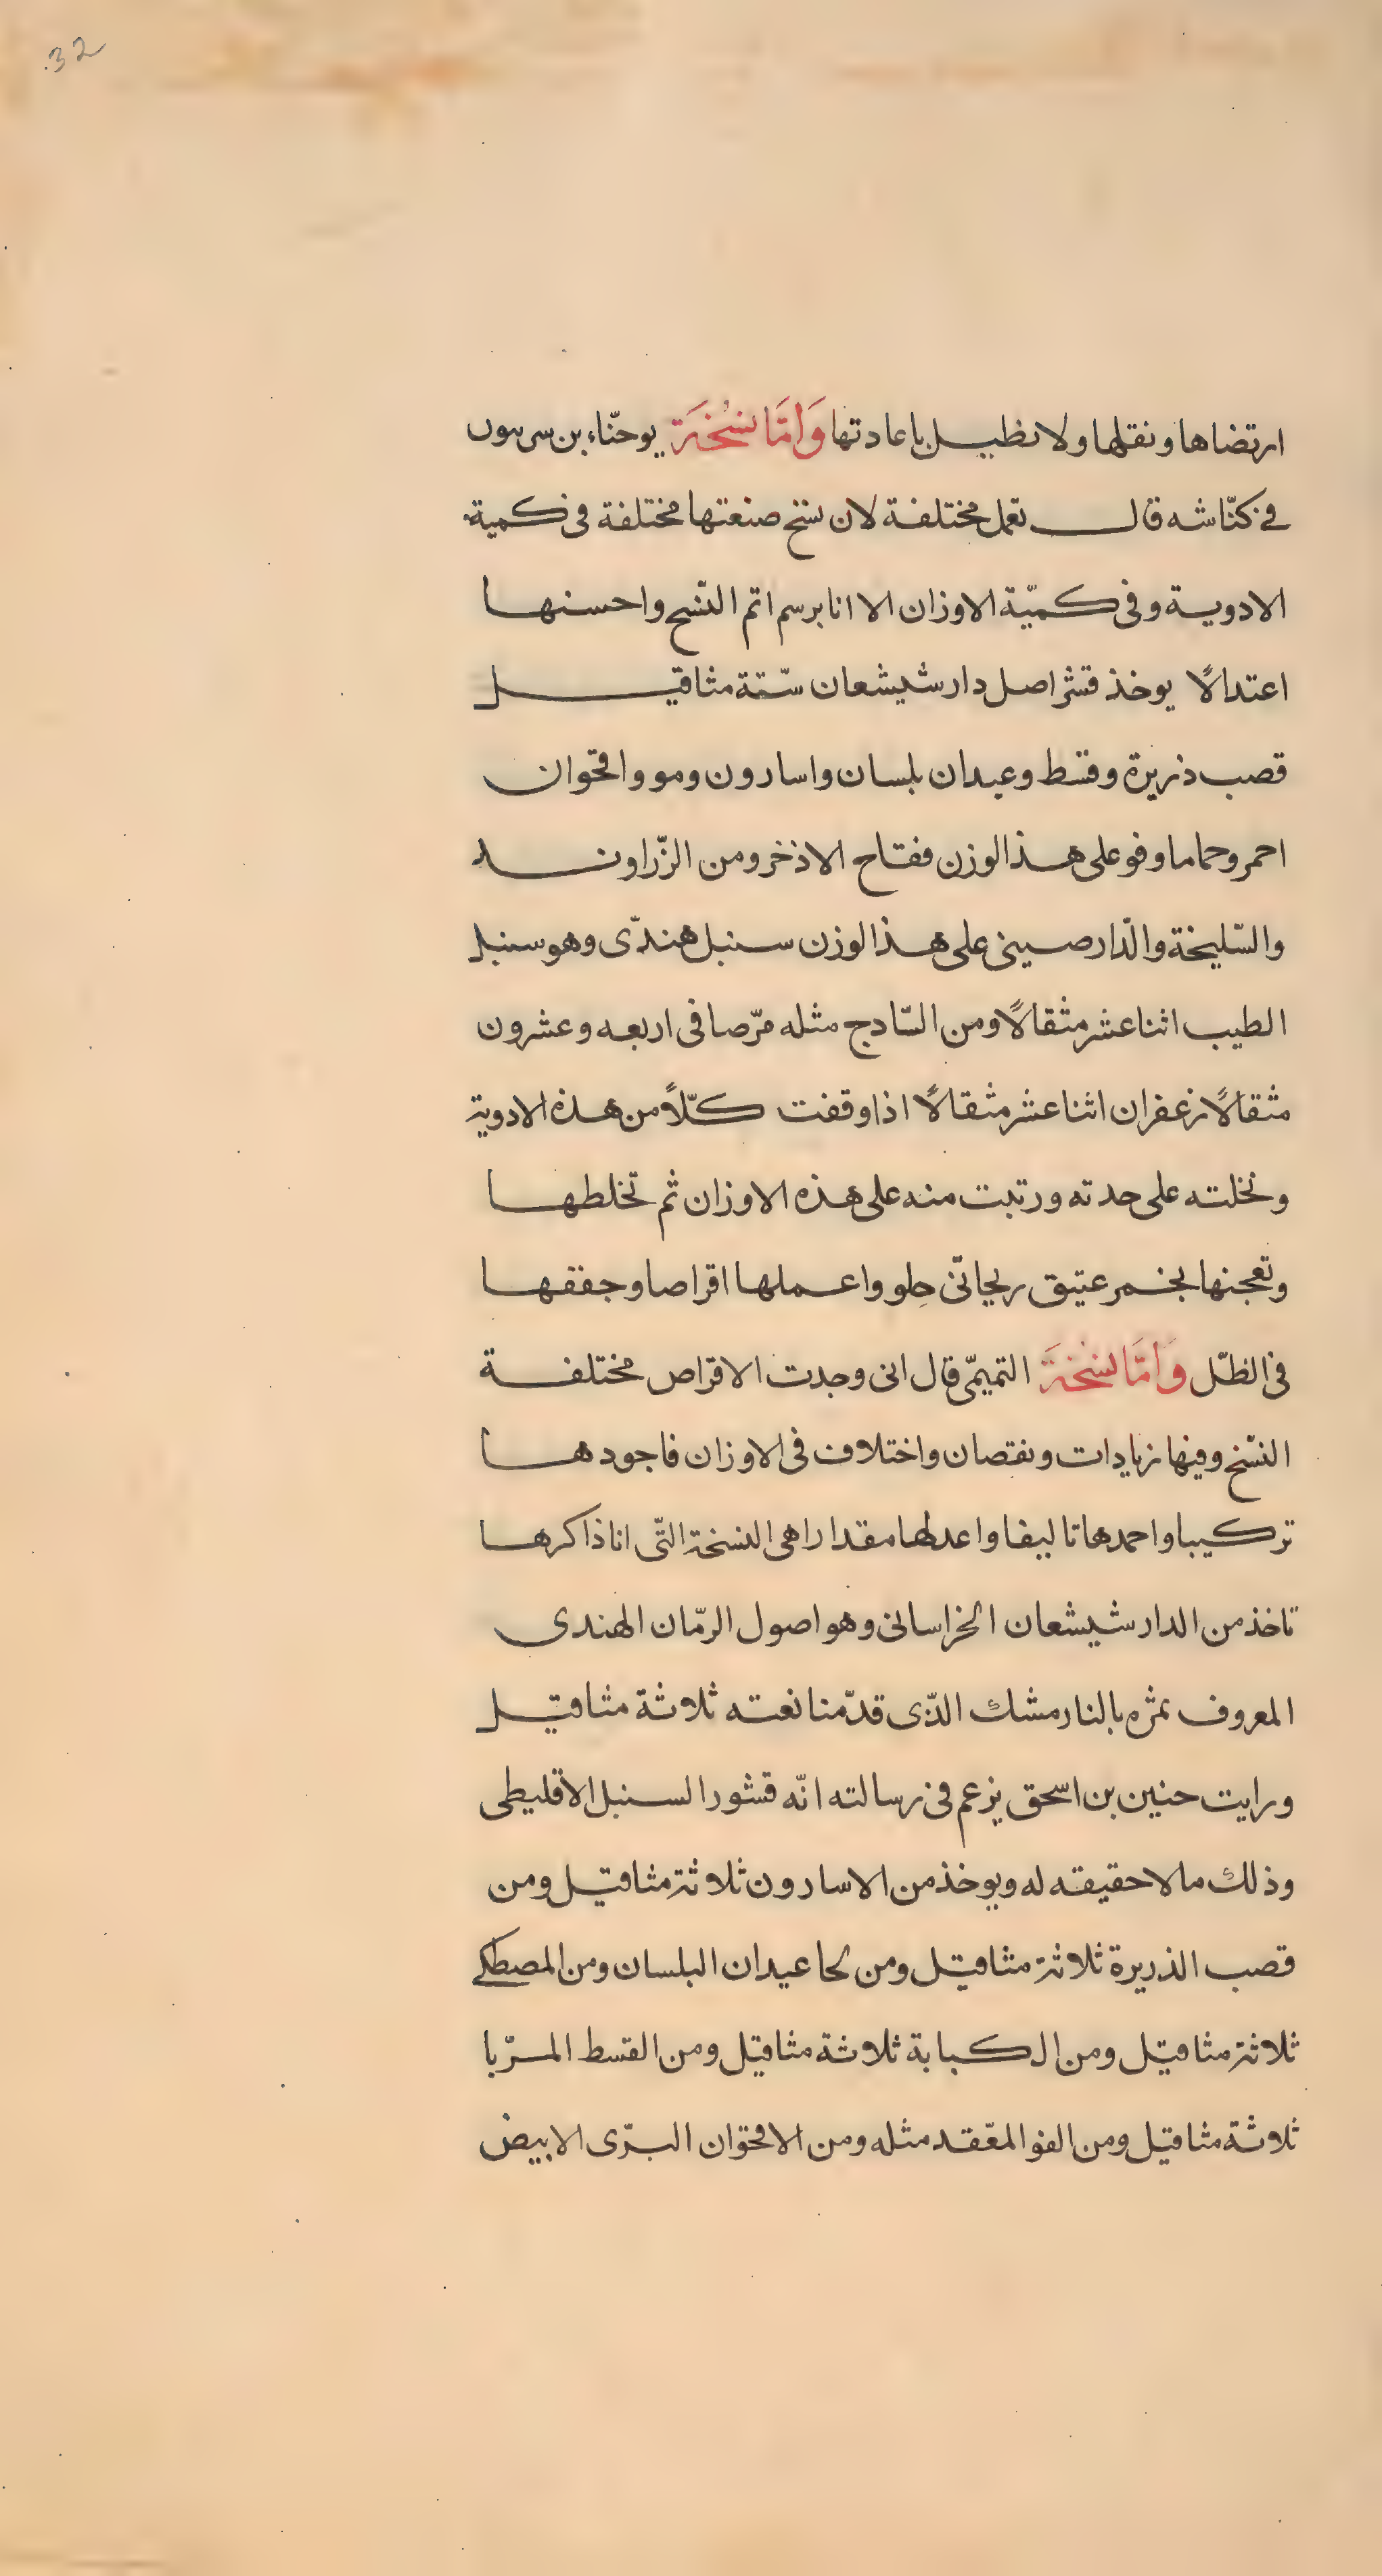 32
ارتضاها ونقلها ولا نطيل باعادتها وَامَّا نسُخَة يوحنّاء بن سرىىون
فى كنّاشه قال تعمل مختلفة لان نسخ صنعتها مختلفة فى كمية
الادوية وفى كميّة الاوزان الا انا برسم اتم النّسخ واحسنها
اعتدالًا يوخذ قشر اصل دار شيشعان ستّة مثاقيل
قصب ذريرة وقسط وعيدان بلسان واسارون ومو واقحوان
احمر وحماما وفو على هذا الوزن فقاح الاذخر ومن الزّراوند
والسّليخة والدّار صينى على هذا الوزن سنبل هندّى وهو سنبل
الطيب اثنا عشر مثقالًا ومن السّادج مثله مرّ صافى اربعه وعشرون
مثقالًا زعفران اثنا عشر مثقالًا اذا وقفت كلّاً من هذه الادوية
ونخلته على حدته ورتبت منه على هذه الاوزان ثم تخلطها
وتعجنها بخمر عتيق ريحانى حلو واعملها اقراصا وجففها
فى الظلّ وَامَّا نسُخَةَ التميمّى قال انى وجدت الاقراص مختلفة
النسّخ وفيها زيادات ونقصان واختلاف فى الاوزان فاجودها
تركيبا واحمدها تاليفا واعدلها مقدارا هى النسخة التّى انا ذاكرها
تاخذ من الدار شيشعان الخراسانى وهو اصول الرمّان الهندى
المعروف ثمره بالنار مشك الذّى قدّمنا نعته ثلاثة مثاقيل
ورايت حنين بن اسحق يزعم فى رسالته انّه قشور السنبل الاقليطى
وذلك ما لا حقيقه له ويوخذ من الاسارون ثلاثة مثاقيل ومن
قصب الذريرة ثلاثة مثاقيل ومن لحا عيدان البلسان ومن المصطكى
ثلاثة مثاقيل ومن الكبابة ثلاثة مثاقيل ومن القسط المرّبا
ثلاثة مثاقيل ومن الفو المعّقد مثله ومن الاقحوان البرّى الابيض